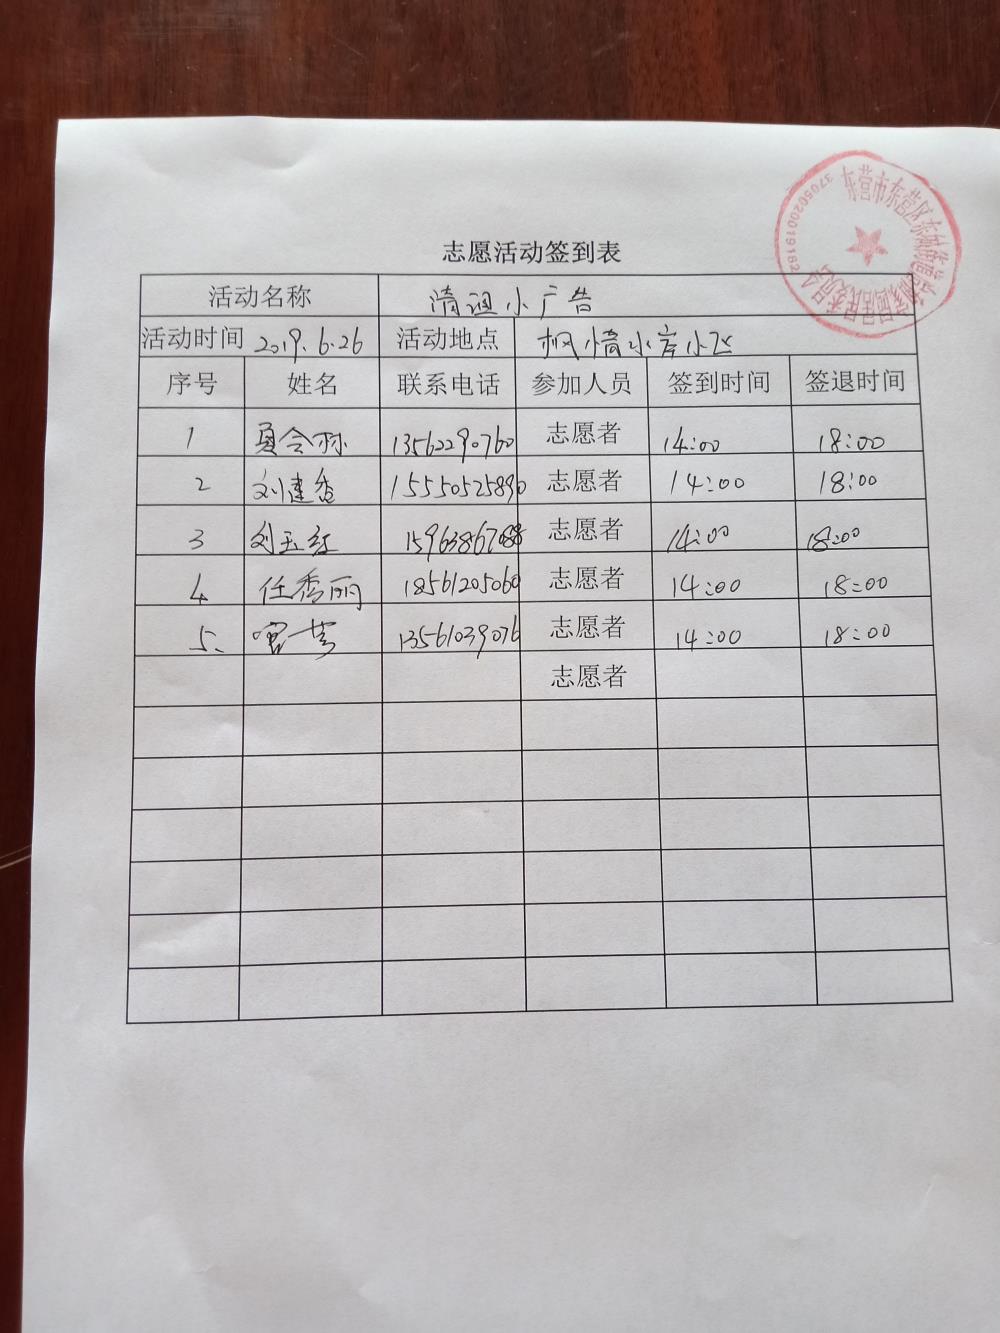 东营市东营区东城街道
居民委员会
3705020019182
志愿活动签到表
活动名称 清理小广告
活动时间 2019.6.26 活动地点 枫情水岸小区
序号 姓名 联系电话 参加人员 签到时间 签退时间
1 夏令 13562290760 志愿者 14:00 18:00
2 刘建香 15550525890 志愿者 14:00 18:00
3 刘玉红 志愿者 14:00 18:00
4 任秀丽 18561205060 志愿者 14:00 18:00
5、 13561039076 志愿者 14:00 18:00
志愿者